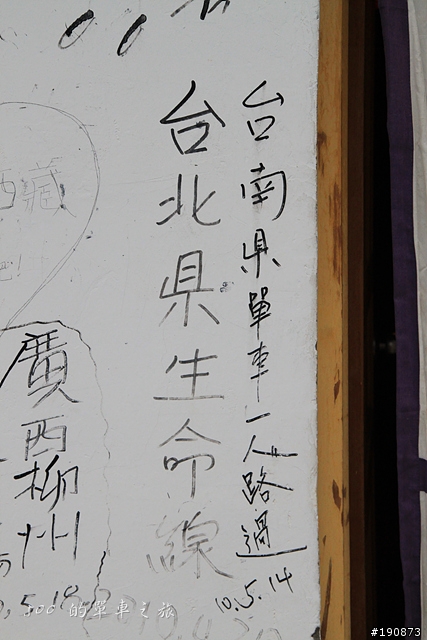 台南県單車一人路過
10.5.14
台北県生命線
西藏
廣西柳州
5.18
的單車之旅
#190873